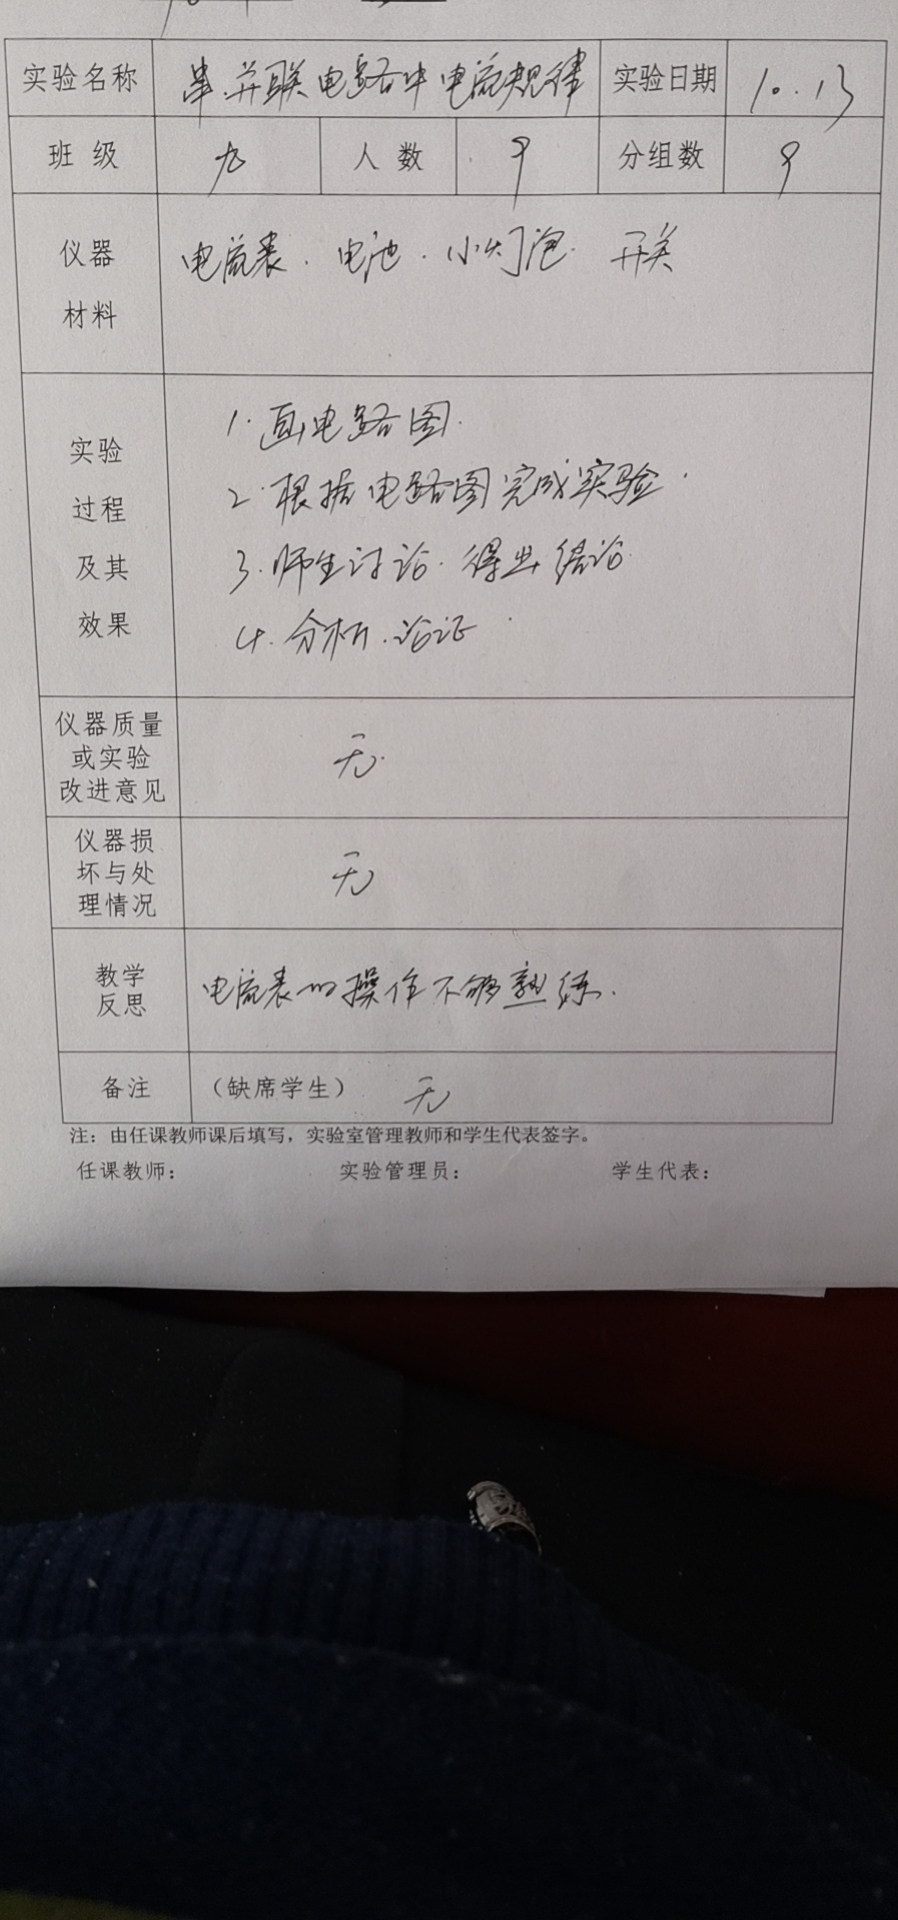 实验名称 串.并联电路中电流规律 实验日期 10.13
班 级 九 人 数 9 分组数 9
仪器
材料
电流表.电池.小灯泡.开关
实验
过程
及其
效果
1.画电路图.
2.根据电路图完成实验.
3.师生讨论.得出结论
4.分析.论证.
仪器质量
或实验
改进意见
无.
仪器损
坏与处
理情况
无
教学
反思
电流表的操作不够熟练.
备注 (缺席学生) 无
注：由任课教师课后填写，实验室管理教师和学生代表签字。
任课教师： 实验管理员： 学生代表：